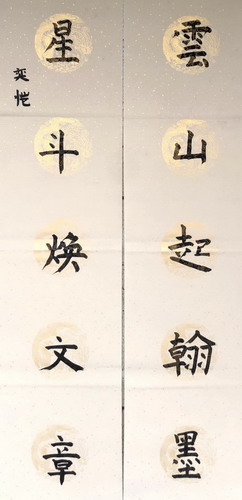 雲山起翰墨
星斗煥文章
奕愷